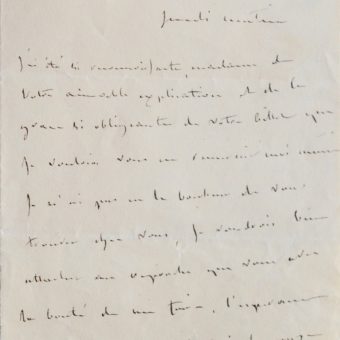 jeudi matin
J'ai été si reconnaissante, madame de
votre aimable explication et de la
grace si obligeante de votre billet que
Je voulois vous en remercier moi même
Je n'ai pas eu le bonheur de vous
trouver chez vous, Je voudrois bien
attacher au que vous avez
la bonté de me faire, l'espérance